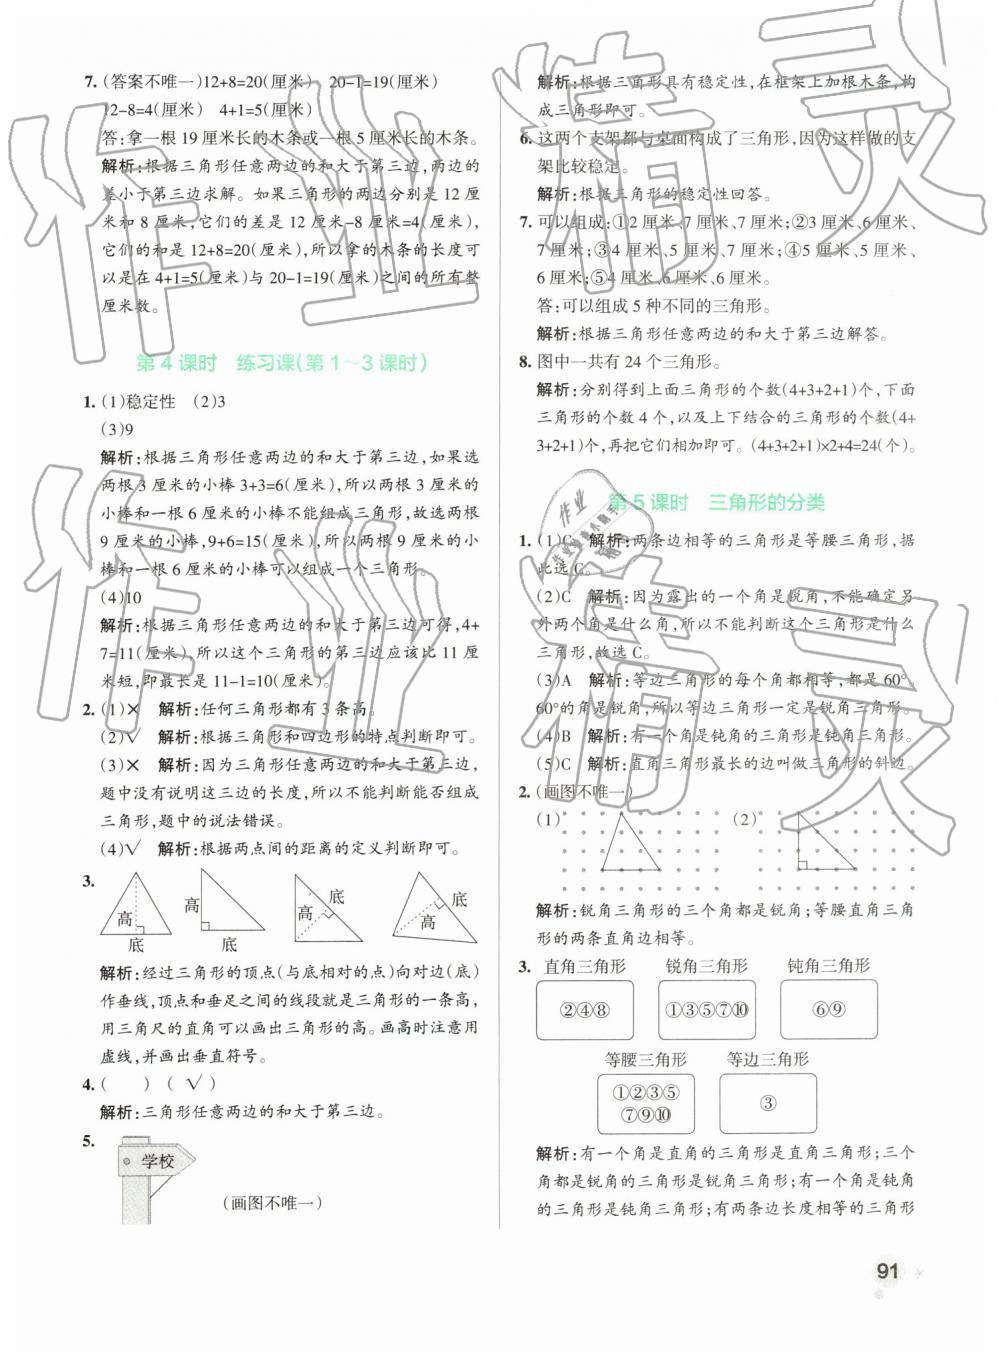 7. (答案不唯一)12+8=20(厘米) 20−1=19(厘米)
12−8=4(厘米) 4+1=5(厘米)
答:拿一根 19 厘米长的木条或一根 5 厘米长的木条。
解析:根据三角形任意两边的和大于第三边,两边的
差小于第三边求解。如果三角形的两边分别是 12 厘
米和 8 厘米,它们的差是 12 厘米−8 厘米=4(厘米),
它们的和是 12+8=20(厘米),所以拿的木条的长度可
以是在 4+1=5(厘米)与 20−1=19(厘米)之间的所有整
厘米数。
第 4 课时 练习课(第 1～3 课时)
1. (1)稳定性 (2)3
(3)9
解析:根据三角形任意两边的和大于第三边,如果选
两根 3 厘米的小棒 3+3=6(厘米),所以两根 3 厘米的
小棒和一根 6 厘米的小棒不能组成三角形,故选两根
9 厘米的小棒,9+6=15(厘米),所以两根 9 厘米的小
棒和一根 6 厘米的小棒可以组成一个三角形。
(4)10
解析:根据三角形任意两边的和大于第三边可得,4+
7=11(厘米),所以这个三角形的第三边应该比 11 厘
米短,即最长是 11−1=10(厘米)。
2. (1)× 解析:任何三角形都有 3 条高。
(2)√ 解析:根据三角形和四边形的特点判断即可。
(3)× 解析:因为三角形任意两边的和大于第三边,
题中没有说明这三边的长度,所以不能判断能否组成
三角形,题中的说法错误。
(4)√ 解析:根据两点间的距离的定义判断即可。
3.
高 底 高 底 高 底 高 底
解析:经过三角形的顶点(与底相对的点)向对边(底)
作垂线,顶点和垂足之间的线段就是三角形的一条高,
用三角尺的直角可以画出三角形的高。画高时注意用
虚线,并画出垂直符号。
4. ( ) ( √ )
解析:三角形任意两边的和大于第三边。
5.
学校
(画图不唯一)
解析:根据三角形具有稳定性,在框架上加根木条,构
成三角形即可。
6. 这两个支架都与桌面构成了三角形,因为这样做的支
架比较稳定。
解析:根据三角形的稳定性回答。
7. 可以组成:①2 厘米、7 厘米、7 厘米;②3 厘米、6 厘米、
7 厘米;③4 厘米、5 厘米、7 厘米;④5 厘米、5 厘米、
6 厘米;⑤4 厘米、6 厘米、6 厘米。
答:可以组成 5 种不同的三角形。
解析:根据三角形任意两边的和大于第三边解答。
8. 图中一共有 24 个三角形。
解析:分别得到上面三角形的个数(4+3+2+1)个,下面
三角形的个数 4 个,以及上下结合的三角形的个数(4+
3+2+1)个,再把它们相加即可。(4+3+2+1)×2+4=24(个)。
第 5 课时 三角形的分类
1. (1)C 解析:两条边相等的三角形是等腰三角形,据
此选 C。
(2)C 解析:因为露出的一个角是锐角,不能确定另
外两个角是什么角,所以不能判断这个三角形是什么
三角形,故选 C。
(3)A 解析:等边三角形的每个角都相等,都是 60°。
60°的角是锐角,所以等边三角形一定是锐角三角形。
(4)B 解析:有一个角是钝角的三角形是钝角三角形。
(5)C 解析:直角三角形最长的边叫做三角形的斜边。
2. (画图不唯一)
(1) (2)
解析:锐角三角形的三个角都是锐角;等腰直角三角
形的两条直角边相等。
3. 直角三角形 锐角三角形 钝角三角形
②④⑧ ①③⑤⑦⑩ ⑥⑨
等腰三角形 等边三角形
①②③⑤
⑦⑨⑩
③
解析:有一个角是直角的三角形是直角三角形;三个
角都是锐角的三角形是锐角三角形;有一个角是钝角
的三角形是钝角三角形;有两条边长度相等的三角形
91
作业精灵
作业精灵